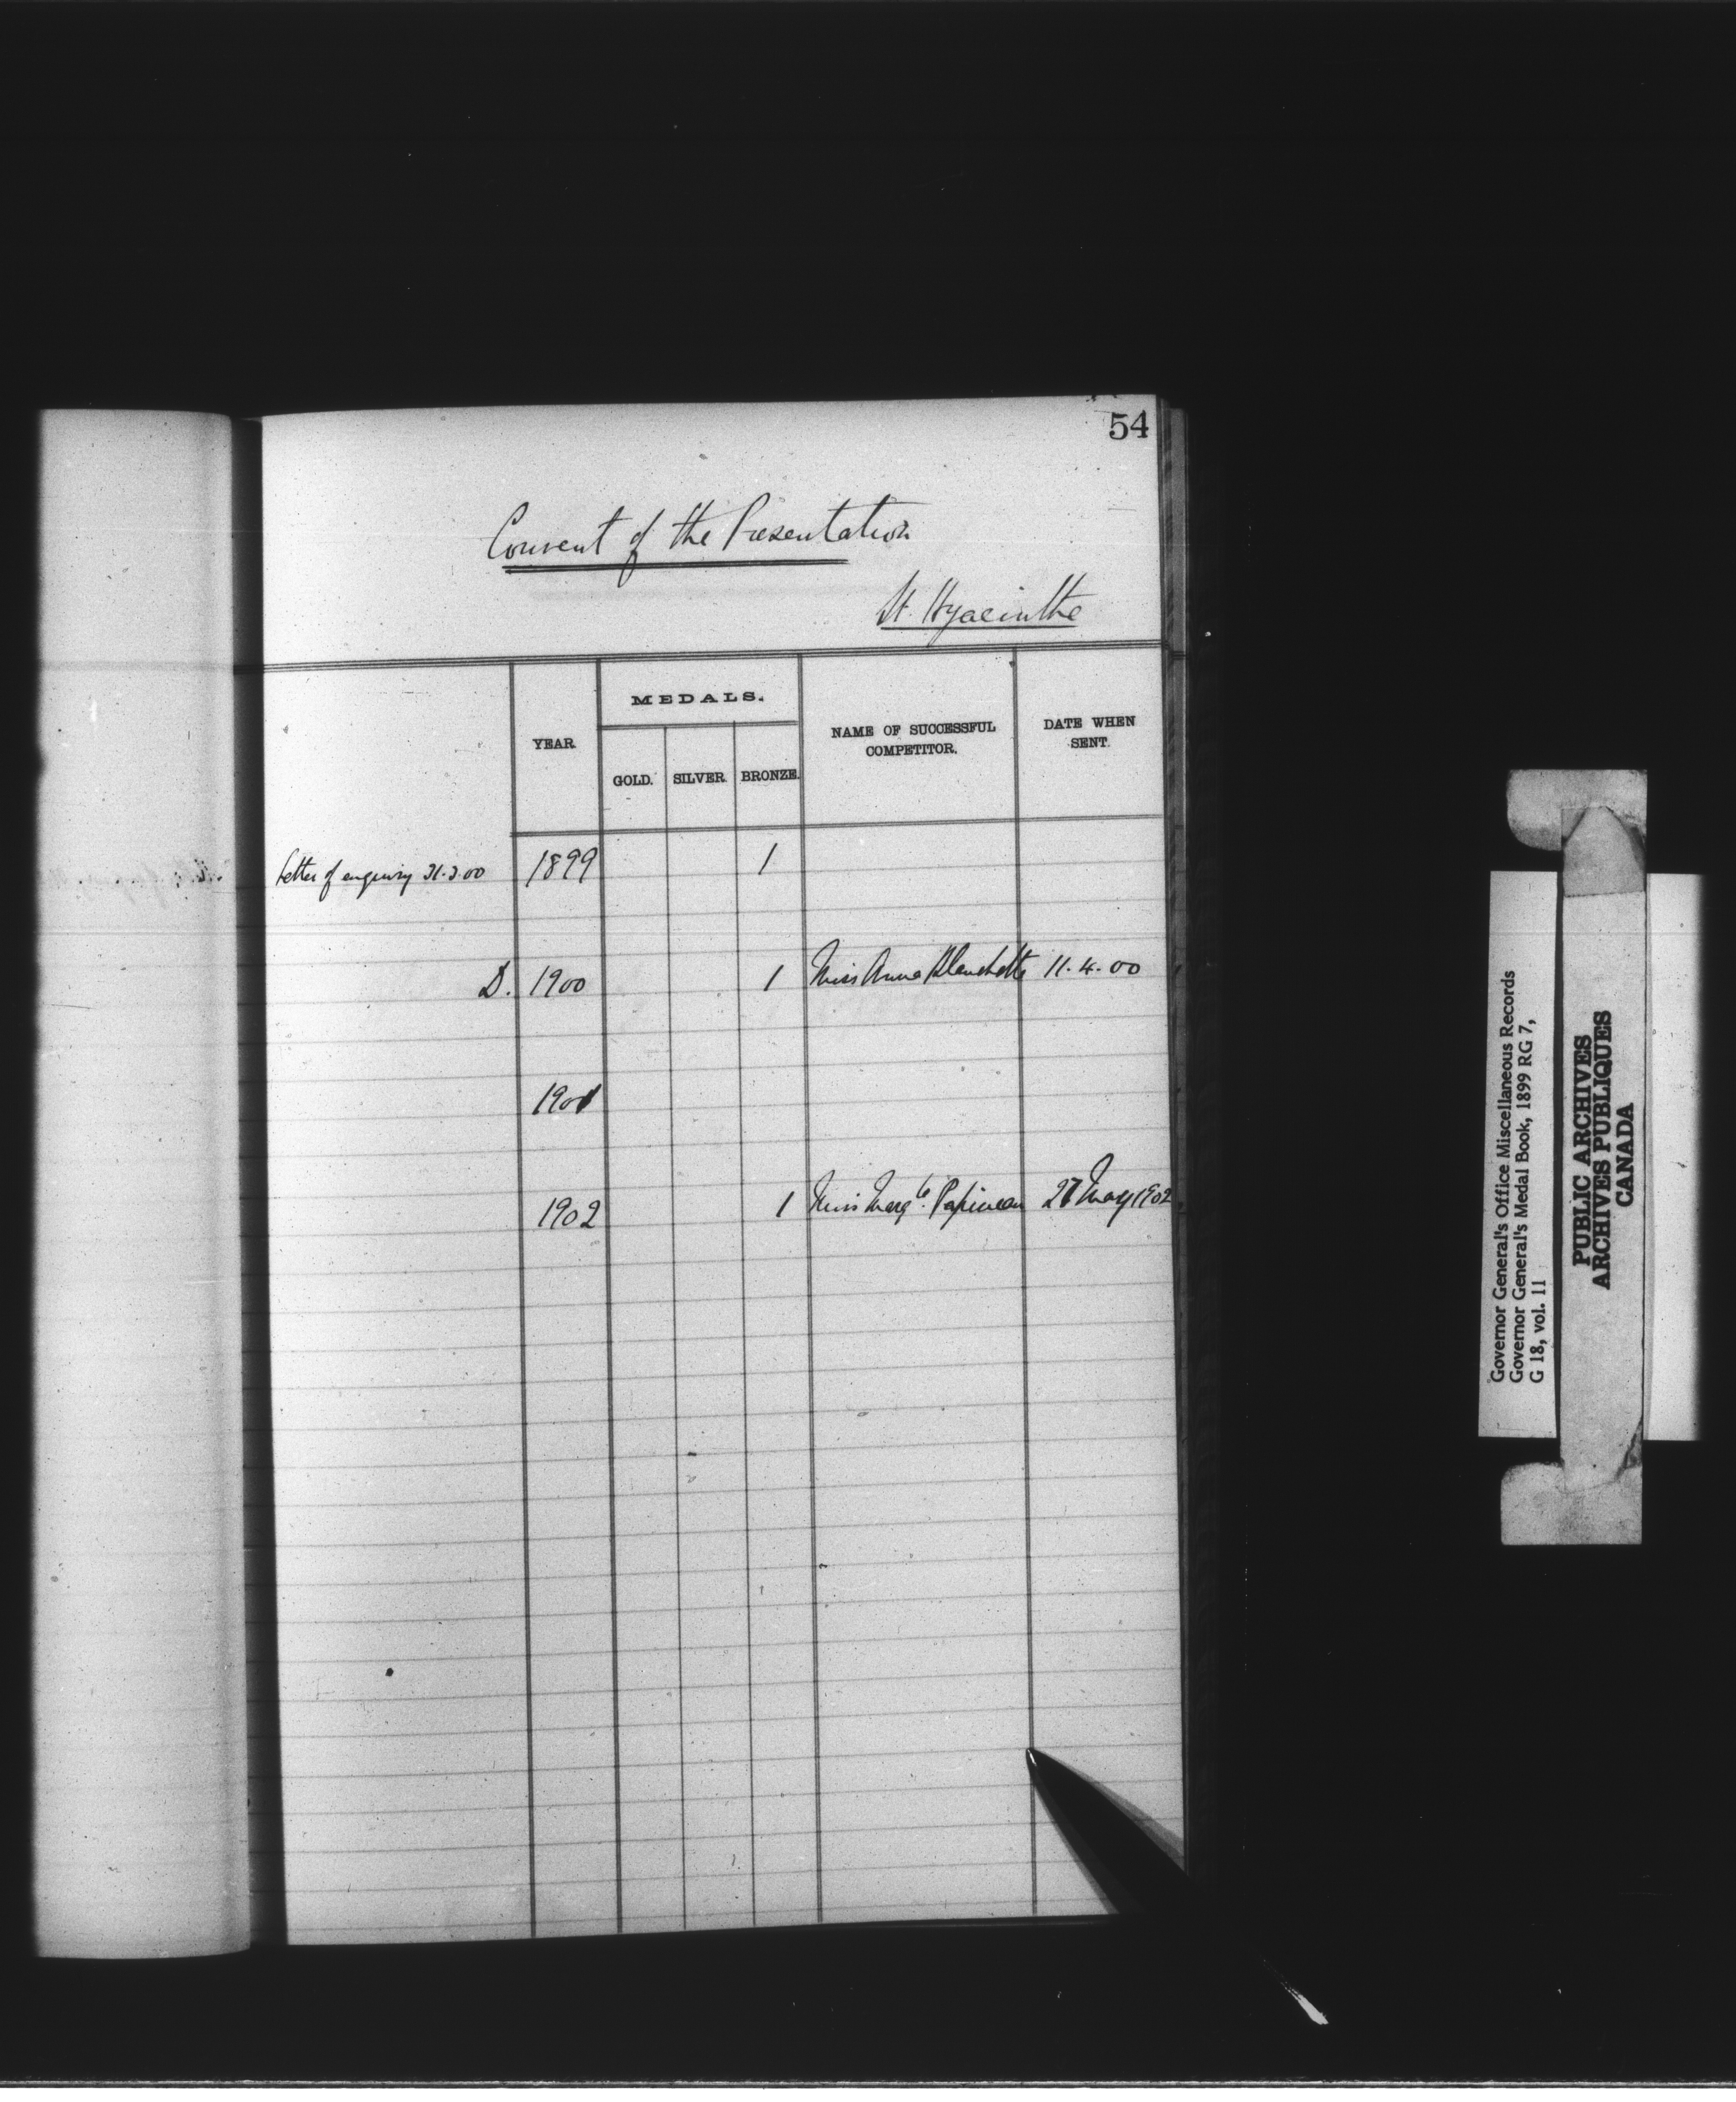 54
Convent of the Presentation
St. Hyacinthe
YEAR.
MEDALS.
GOLD.
SILVER.
BRONZE.
NAME OF SUCCESSFUL
COMPETITOR.
DATE WHEN
SENT.
Letter of enquiry 31.3.00 1899 1
D. 1900 1 Miss Anna Blanchette 11.4.00
1901
1902 1 Miss Margte. Papineau 27 May 1902
Governor General's Office Miscellaneous Records
Governor General's Medal Book, 1899 RG 7,
G 18, vol. 11
PUBLIC ARCHIVES
ARCHIVES PUBLIQUES
CANADA